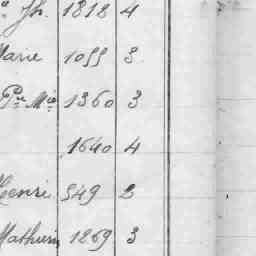 Jh. 1818 4
Marie 1055 3
Pre Mie 1360 3
1640 4
Henri 549 2
Mathurin 1269 3